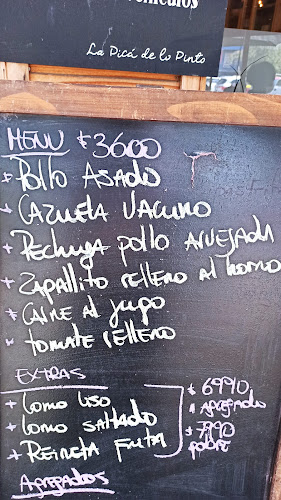 La Picá de lo Pinto
MENU $3600
+ Pollo ASADO
+ CAZUELA VACUNO
+ Pechuga pollo ARVEJADA
+ Zapallito relleno al horno
+ CARNE al jugo
+ tomate relleno
EXTRAS
+ Lomo liso
+ Lomo saltado
+ Reineta frita
$ 6990
+ AGREGADO
$ 7990
POBRE
AGREGADOS